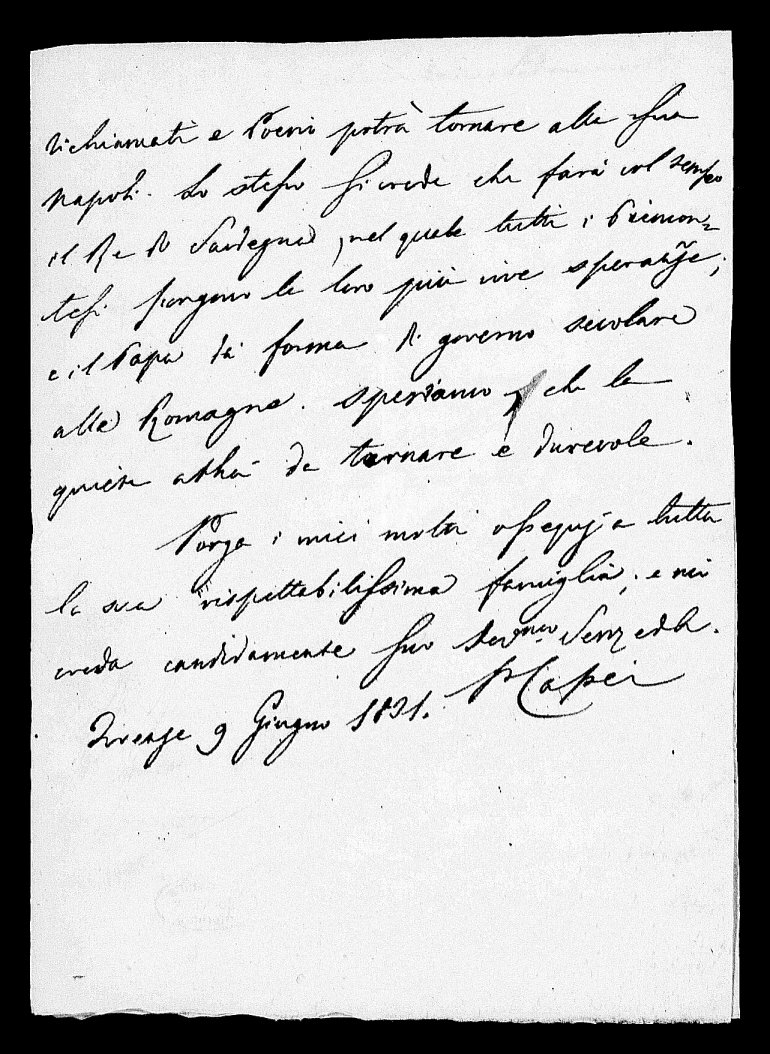 richiamati e Poerio potrà tornare alla sua
Napoli. Lo stesso si crede che farà col tempo
il Re di Sardegna, nel quale tutti i Piemon=
tesi pongono le loro più vive speranze;
e il Papa dà forma di governo secolare
alle Romagne. Speriamo, che la
quiete abbia da tornare e durevole.
Porga i miei molti ossequj a tutta
la sua rispettabilissima famiglia; e mi
creda candidamente suo
P Capei
Firenze 9 Giugno 1831.